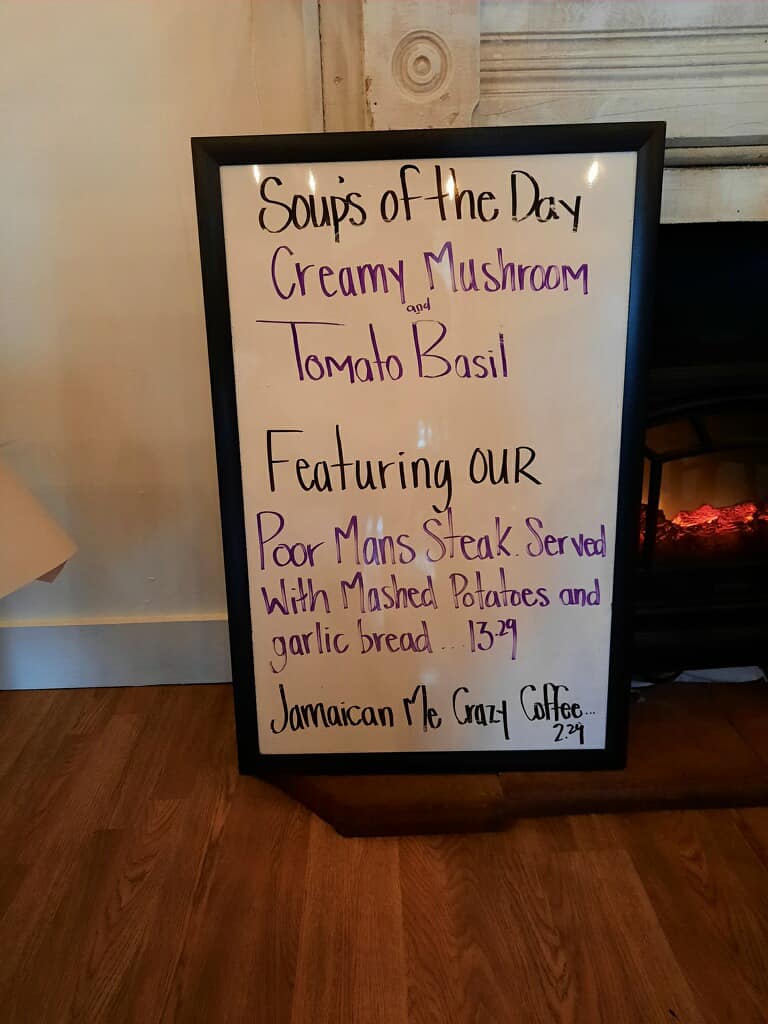 Soup's of the Day
Creamy Mushroom
and
Tomato Basil
Featuring OUR
Poor Mans Steak. Served
With Mashed Potatoes and
garlic bread...13.29
Jamaican Me Crazy Coffee...
2.29